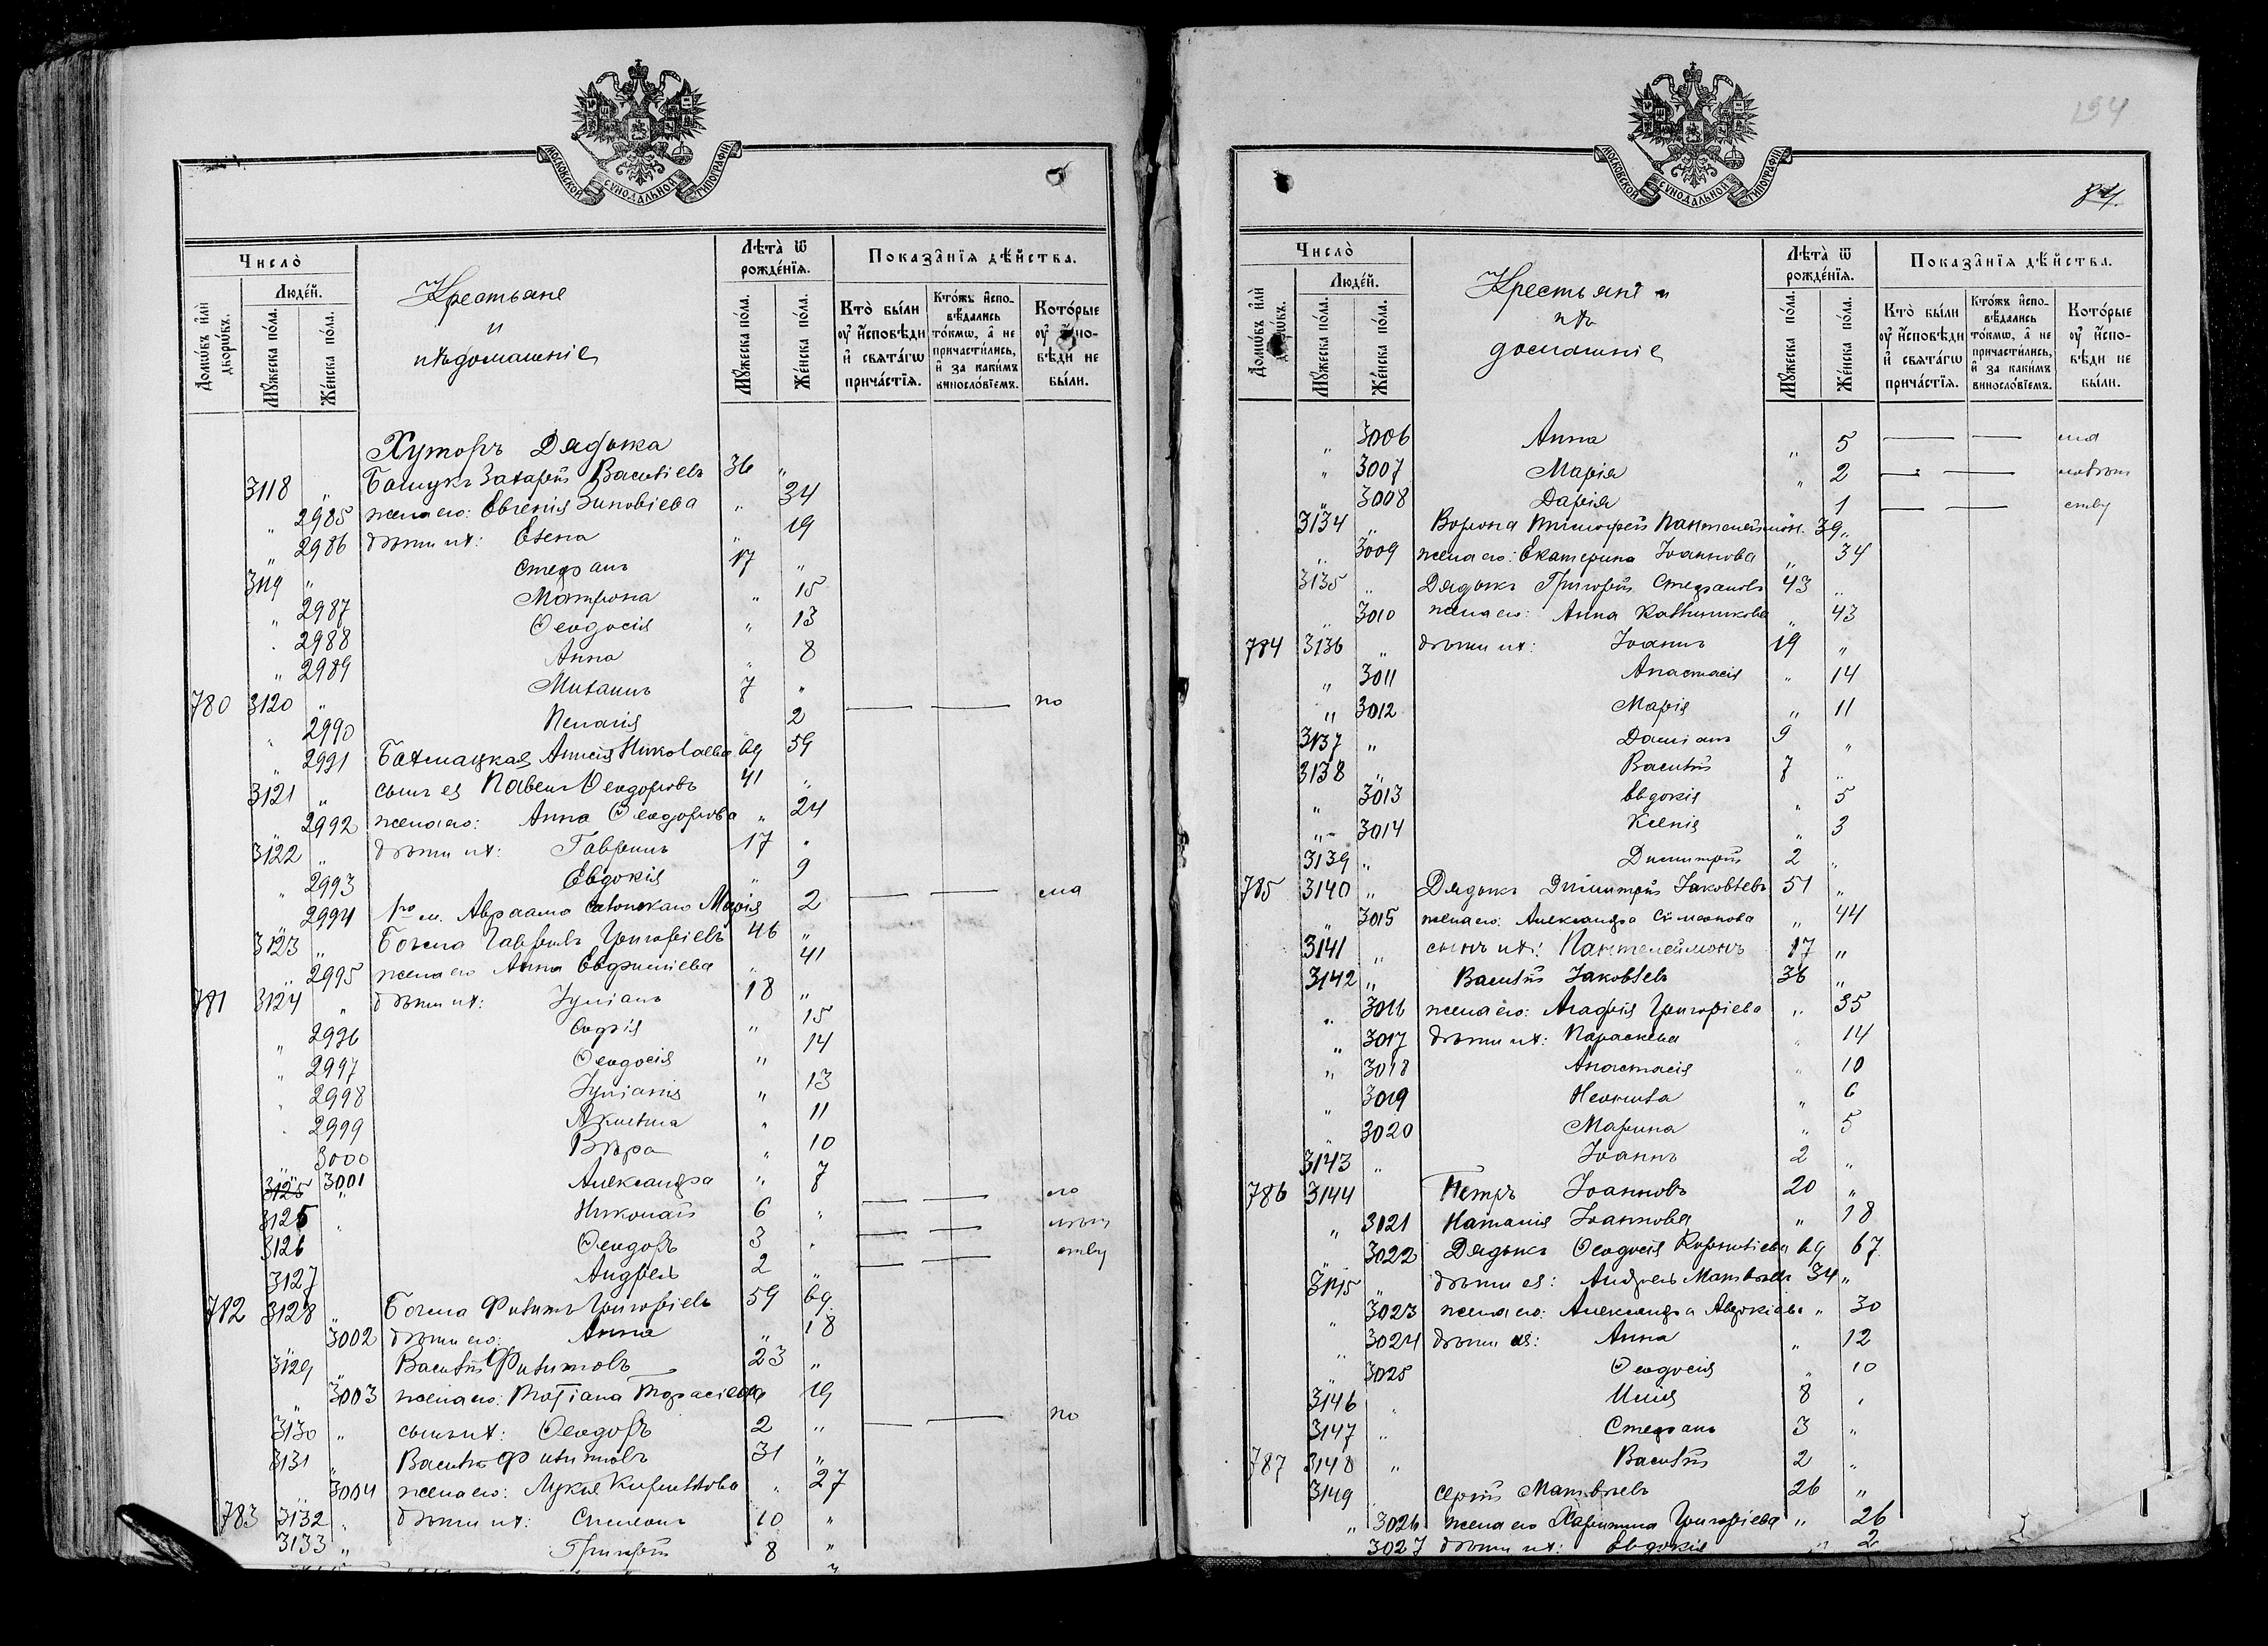 МОСКОВСКОЙ СѴНОДАЛЬНОЙ ТИПОГРАФІИ
Число̀
Домѡ́въ и҆лѝ дворѡ́въ.
Люде́й.
Мꙋ́жеска по́ла.
Же́нска по́ла.
Крестьяне
и
ихъ домашніе
Лѣта̀ ѿ рожде́нїѧ.
Мꙋ́жеска по́ла.
Же́нска по́ла.
Показа̂нїѧ дѣ́йства.
Кто̀ бы́ли оу҆ и҆сповѣ́ди и҆ свѧта́гѡ прича́стїѧ.
Кто́жъ и҆сповѣ́дались то́кмѡ, а҆ не причасти́лись, и҆ за каки́мъ виносло́вїемъ.
Кото́рые оу҆ и҆сповѣ́ди не бы́ли.
Хуторъ Дядька
3118 " Захарій Васильевъ 36 "
" 2985 жена его: Евгенія Зиновіева " 34
" 2986 дѣти их: Елена " 19
3119 " Стефанъ 17 "
" 2987 Матрона " 15
" 2988 Ѳеодосія " 13
" 2989 Анна " 8
780 3120 " Михаилъ 7 " по
" 2990 Пелагія 2
" 2991 Бахмацкая Анисія Николаева вд 59
3121 " сынъ ея Павелъ Ѳеодоровъ 41 "
2992 жена его: Анна Ѳеодорова " 24
3122 " дѣти их: Гавріилъ 17 "
" 2993 Евдокія " 9
2994 Марія 2 — — ма
3123 " Гавріилъ Григоріевъ 46 "
" 2995 жена его Анна Евфиміева " 41
781 3124 " дѣти их: Іуліанъ 18 "
" 2996 Софія " 15
" 2997 Ѳеодосія " 14
" 2998 Іуліанія " 13
" 2999 Акилина " 11
3000 Вѣра " 10
3125 3001 Александра " 7
3125 " Николай 6 " — — ло
3126 Ѳеодоръ 3 " — — лѣт
3127 Андрей 2 " — — ству
782 3128 " Филиппъ Григоріевъ 59 вд
3002 дѣти его: Анна " 18
3129 " Василій Филиповъ 23 "
" 3003 жена его: Татіана Тарасіева 19
3130 " сынъ их: Ѳеодоръ 2 " — — по
3131 " Василій Филиповъ 31 "
3004 жена его: Лукія Кириллова " 27
783 3132 " дѣти их: Симеонъ 10 "
3133 " Григорій 8 "
154
84.
МОСКОВСКОЙ СѴНОДАЛЬНОЙ ТИПОГРАФІИ
Число̀
Домѡ́въ и҆лѝ дворѡ́въ.
Люде́й.
Мꙋ́жеска по́ла.
Же́нска по́ла.
Крестьяне и
ихъ
домашніе
Лѣта̀ ѿ рожде́нїѧ.
Мꙋ́жеска по́ла.
Же́нска по́ла.
Показа̂нїѧ дѣ́йства.
Кто̀ бы́ли оу҆ и҆сповѣ́ди и҆ свѧта́гѡ прича́стїѧ.
Кто́жъ и҆сповѣ́дались то́кмѡ, а҆ не причасти́лись, и҆ за каки́мъ виносло́вїемъ.
Кото́рые оу҆ и҆сповѣ́ди не бы́ли.
" 3006 Анна " 5 — — ма
" 3007 Марія " 2 — — лолѣт
" 3008 Дарія 1 — — ству
3134 " Ворона Тимофей Пантелеймон. 39 "
" 3009 жена его: Екатерина Іоаннова " 34
3135 " Дядькъ Григорій Стефановъ 43 "
" 3010 жена его: Анна Каллиникова " 43
784 3136 " дѣти их: Іоаннъ 19 "
" 3011 Анастасія " 14
" 3012 Марія " 11
3137 " Даміанъ 9 "
3138 " Василій 7 "
" 3013 Евдокія " 5
" 3014 Ксенія " 3
3139 " Димитрій 2 "
785 3140 " Дядькъ Димитрій Іаковлевъ 51 "
" 3015 жена его: Александра Симеонова " 44
3141 " сынъ их: Пантелеймонъ 17 "
3142 " Василій Іаковлевъ 36 "
" 3016 жена его: Агафія Григоріева " 35
" 3017 дѣти их: Параскева " 14
" 3018 Анастасія " 10
" 3019 Неонила " 6
" 3020 Марина " 5
3143 " Іоаннъ 2 "
786 3144 Петръ Іоанновъ 20 "
" 3021 Наталія Іоаннова " 18
3022 Дядькъ Ѳеодосія Корнилієва вд 67
3145 " дѣти ея: Андрей Матвѣевъ 34 "
" 3023 жена его: Александра " 30
" 3024 дѣти их: Анна " 12
" 3025 Ѳеодосія " 10
3146 " Илія 8 "
3147 " Стефанъ 3 "
787 3148 " Василій 2 "
3149 Сергій Матвѣевъ 26 "
" 3026 жена его Харитина Григоріева " 26
3027 дѣти их: Евдокія " 2